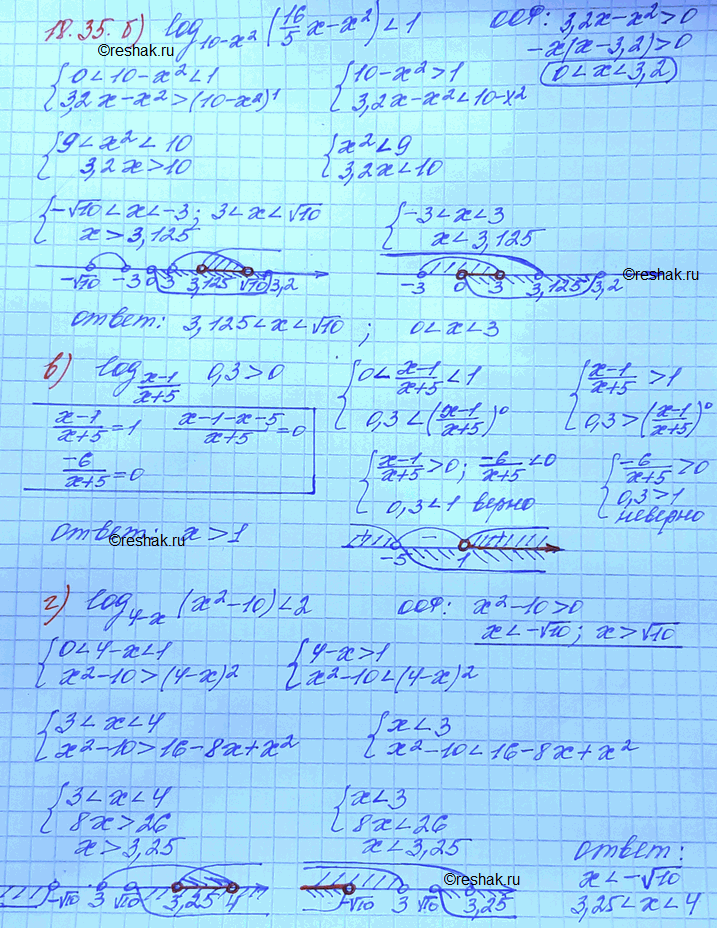 18.35. б) log₁₀₋ₓ² (16/5 x-x²) < 1   ООФ: 3,2x-x² > 0
-x(x-3,2) > 0
0 < x < 3,2
reshak.ru
{0 < 10-x² < 1   {10-x² > 1
{3,2x-x² > (10-x²)¹   {3,2x-x² < 10-x²
{9 < x² < 10   {x² < 9
{3,2x > 10   {3,2x < 10
{-√10 < x < -3; 3 < x < √10   {-3 < x < 3
{x > 3,125   {x < 3,125
-√10 -3 0 3 3,125 √10 3,2   -3 0 3 3,125 3,2
reshak.ru
ответ: 3,125 < x < √10 ; 0 < x < 3
в) log_(x-1)/(x+5) 0,3 > 0   {0 < (x-1)/(x+5) < 1   {(x-1)/(x+5) > 1
{0,3 < ((x-1)/(x+5))⁰   {0,3 > ((x-1)/(x+5))⁰
(x-1)/(x+5) = 1   (x-1-x-5)/(x+5) = 0
-6/(x+5) = 0
{(x-1)/(x+5) > 0; -6/(x+5) < 0   {-6/(x+5) > 0
{0,3 < 1 верно   {0,3 > 1
неверно
ответ: x > 1
reshak.ru
+ - +
-5 1
г) log₄₋ₓ (x²-10) < 2   ООФ: x²-10 > 0
x < -√10; x > √10
{0 < 4-x < 1   {4-x > 1
{x²-10 > (4-x)²   {x²-10 < (4-x)²
{3 < x < 4   {x < 3
{x²-10 > 16-8x+x²   {x²-10 < 16-8x+x²
{3 < x < 4   {x < 3
{8x > 26   {8x < 26
x > 3,25   x < 3,25
ответ:
x < -√10
3,25 < x < 4
reshak.ru
-√10 3 √10 3,25 4   -√10 3 √10 3,25